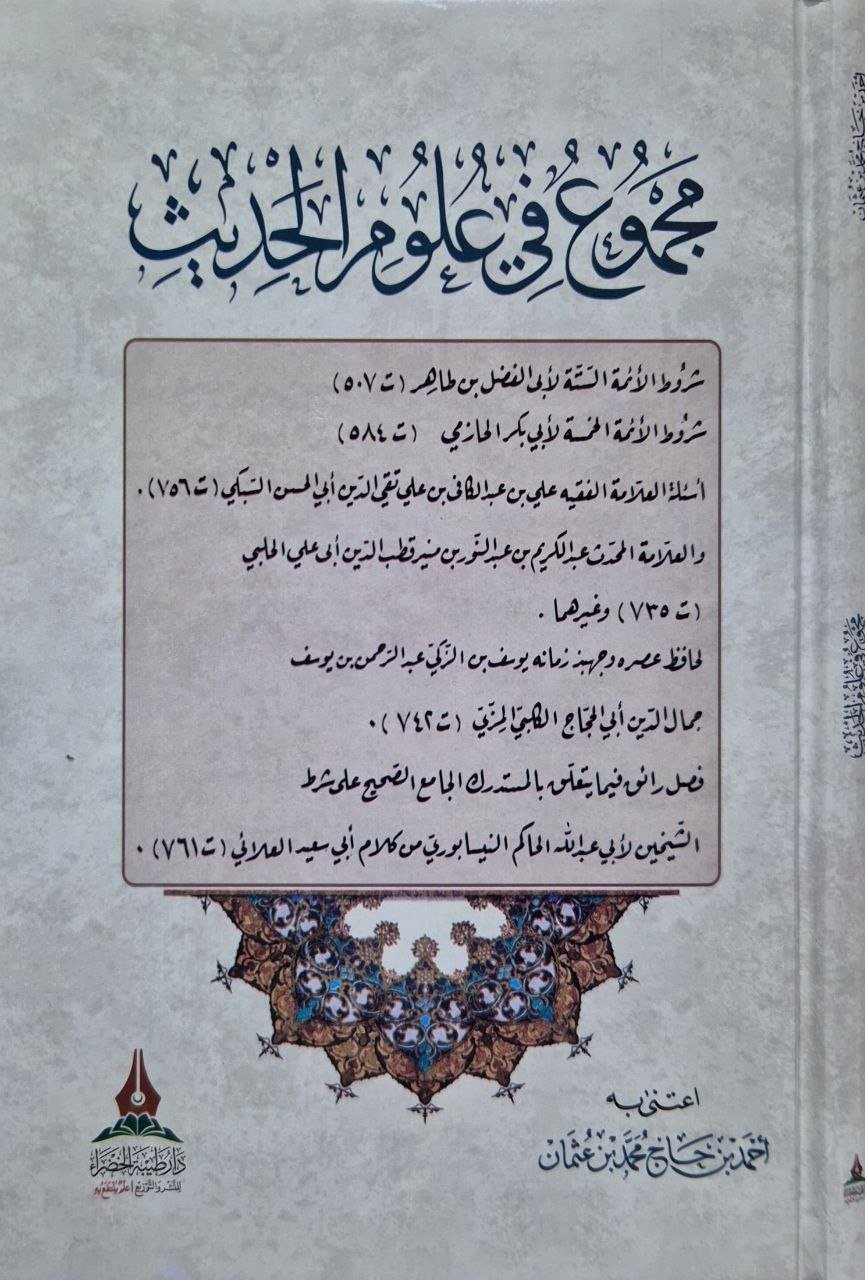 مَجْمُوعٌ فِي عُلُومِ الْحَدِيثِ
شروط الأئمة الستة لأبى الفضل بن طاهر (ت ٥٠٧)
شروط الأئمة الخمسة لأبي بكر الحازمي (ت ٥٨٤)
أسئلة العلّامة الفقيه علي بن عبد الكافى بن علي تقي الدّين أبي الحسن السّبكي (ت ٧٥٦).
والعلّامة المحدّث عبد الكريم بن عبد النّور بن منير قطب الدّين أبى علي الحلبي
(ت ٧٣٥) وغيرهما.
لحافظ عصره وجهبذ زمانه يوسف بن الزّكيّ عبد الرّحمن بن يوسف
جمال الدّين أبي الحجّاج الكلبيّ المِزّيّ (ت ٧٤٢).
فصل رائق فيما يتعلّق بالمستدرك الجامع الصّحيح على شرط
الشّيخين لأبي عبد الله الحاكم النيسابوريّ من كلام أبي سعيد العلائي (ت ٧٦١).
اعتنى به
أحمد بن حاج محمّد بن عثمان
دار طيبة الخضراء
للنشر والتوزيع | علم ينتفع به
أحمد بن حاج محمد بن عثمان
مجموع في علوم الحديث